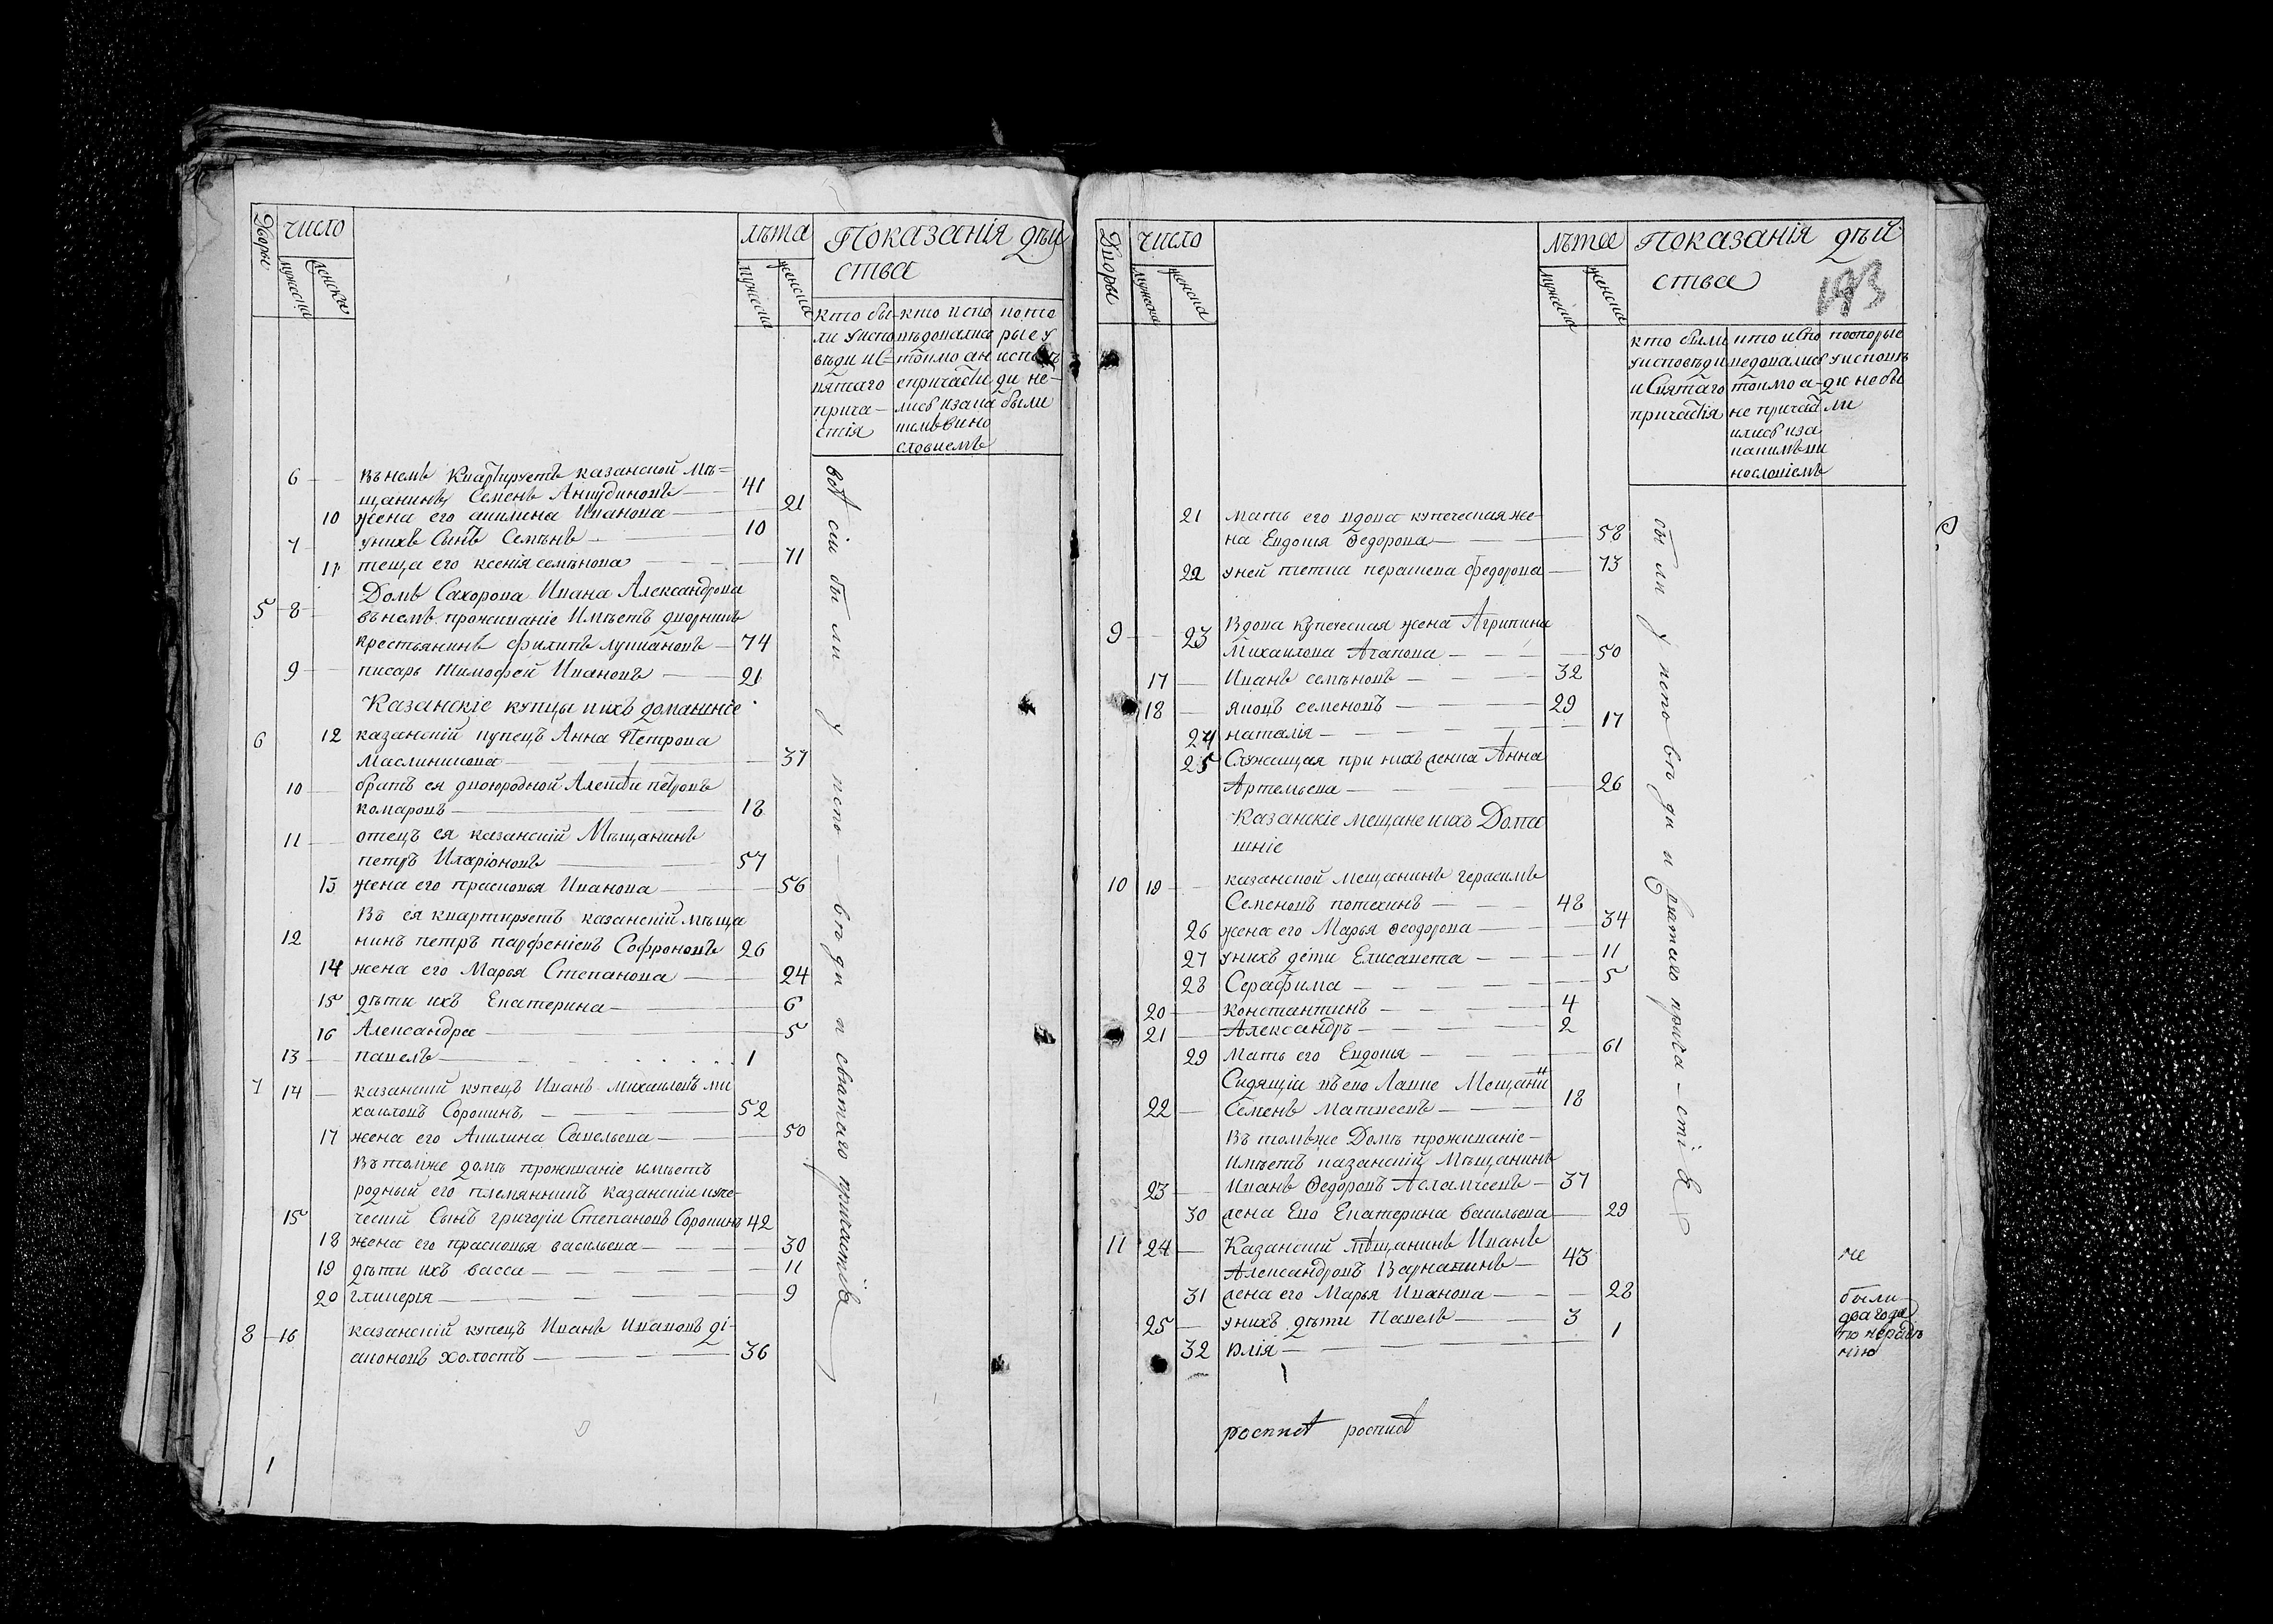 Дворы
число
лѣта
Показанія дѣй
ства
мужеска
женска
мужеска
женска
кто бы-
ли у испо
вѣди и с-
вятаго
прича-
стія
кто испо
вѣдовались
токмо а н
епричасти
лись и за ка
кимъ вино
словиемъ
кото
рые у
исповѣ
ди не-
были
6 Въ немъ квартируетъ казанской мѣ=
щанинъ Семенъ Антудиновъ 41
10 жена его акилина Иванова 21
7 у нихъ сынъ Семѣнъ 10
11 теща его ксенія семѣнова 71
Домъ Сахорова Ивана Александрова
5 8 въ немъ проживаніе Имѣетъ дворникъ
крестьянинъ филипъ лукиановъ 74
9 писарь Тимофей Ивановъ 21
Казанскіе купцы и ихъ домашніе
6 12 казанскій купецъ Анна Петрова
Маслиникова 37
10 братъ ея двоюродной Алексѣи петровъ
комаровъ 18
11 отецъ ея казанскій Мѣщанинъ
петръ Иларіоновъ 57
13 жена его прасковья Иванова 56
Въ ея квартируетъ казанскій мѣща
12 нинъ петръ парфеніевъ Софроновъ 26
14 жена его Марья Степанова 24
15 дѣти ихъ Екатерина 6
16 Александра 5
13 павелъ 1
7 14 казанскій купецъ Иванъ михаиловъ ми
хаиловъ Сорокинъ 52
17 жена его Акилина Савельева 50
Въ томже домѣ проживаніе имѣетъ
родный его племянникъ казанскіи купе-
15 ческій Сынъ григоріи Степановъ Сорокинъ 42
18 жена его прасковья васильева 30
19 дѣти ихъ васса 11
20 гликерія 9
8 16 казанскій купецъ Иванъ Ивановъ ді-
аконовъ холостъ 36
всѣ сіи были у исповѣди и святаго причастія
1
Дворы
число
лѣта
Показанія дѣй
ства
193
мужеска
женска
мужеска
женска
кто были
у исповѣди
и Святаго
причастія
кто испо
ведовались
токмо а-
не причас
ились и за
какимъ ви
нословіемъ
которые
у исповѣ
ди не бы
ли
21 мать его вдова купеческая же-
на Евдокія Ѳедорова 58
22 у ней тетка параскева федорова 73
9 23 Вдова купеческая жена Агрипина
Михаилова Агапова 50
17 Иванъ семѣновъ 32
18 яковъ семеновъ 29
24 наталія 17
25 Служащая при нихъ девка Анна
Артемьева 26
Казанскіе мещане и ихъ Дома
шніе
10 19 казанской мещанинъ герасимъ
Семеновъ потехинъ 48
26 жена его Марья Ѳеодорова 34
27 у нихъ дети Елисавета 11
28 Серафима 5
20 константинъ 4
21 Александръ 2
29 Мать его Евдокія 61
Сидящіи въ ево Лавке Мещанин
22 Семенъ Матвеевъ 18
Въ томъже Домѣ проживаніе-
Имѣетъ казанскій Мѣщанинъ
23 Иванъ Ѳедоровъ Асламчеевъ 37
30 жена Ево Екатерина васильева 29
11 24 Казанскій мѣщанинъ Иванъ
Александровъ Варнавинъ 43
31 жена его Марья Иванова 28
25 у нихъ дѣти Павелъ 3
32 Юлія 1
были у исповѣди и святаго прича-стія
не
были
два года
по нерадѣ
нію
роспись роспись